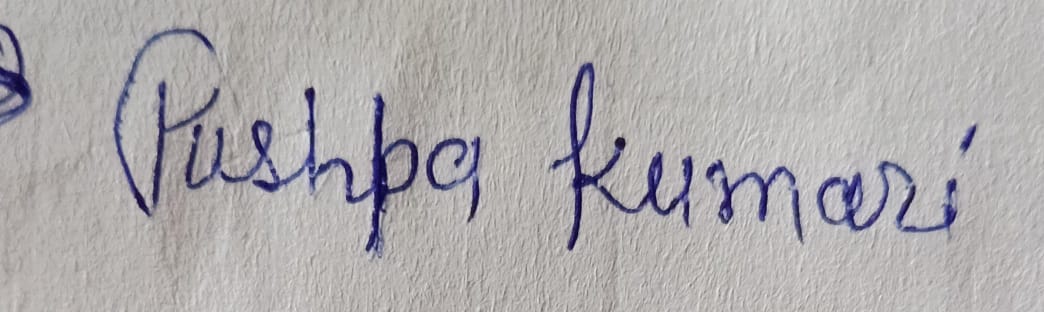 Pushpa kumari